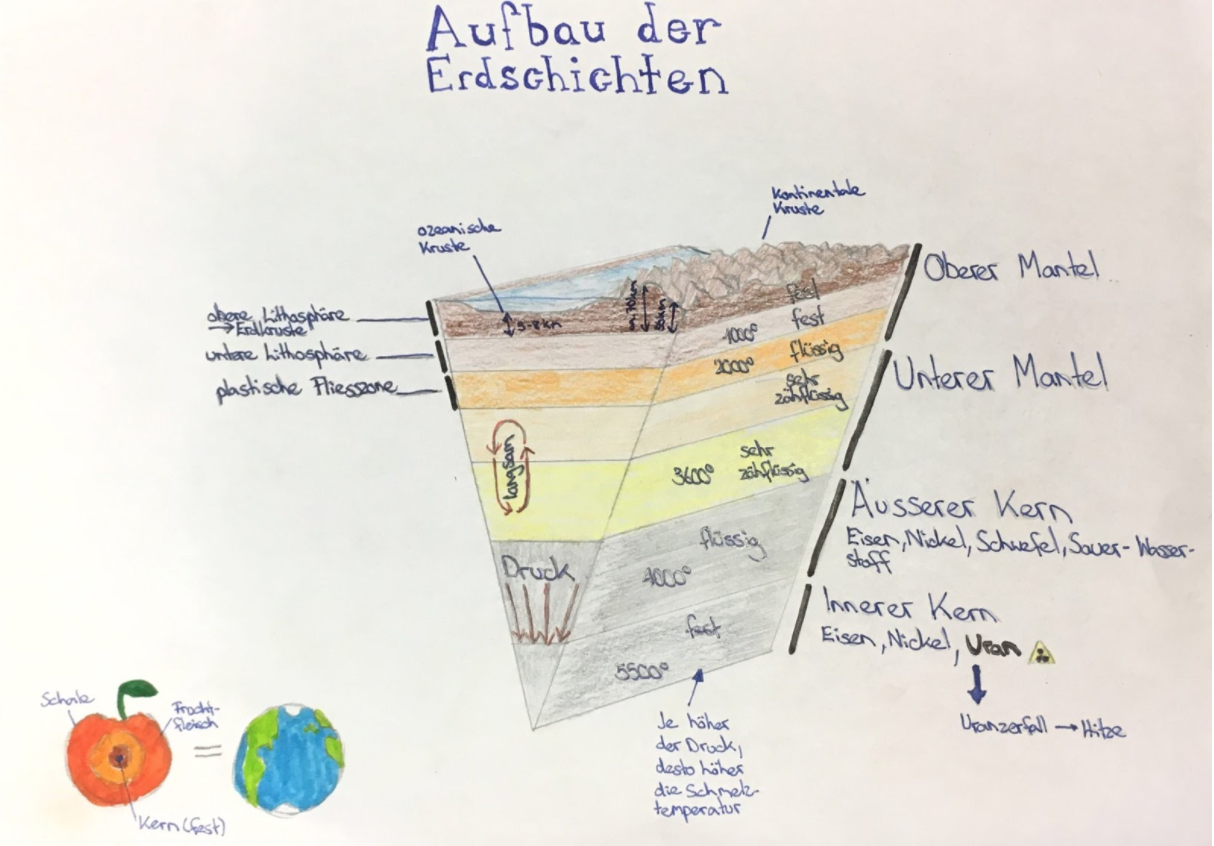 Aufbau der
Erdschichten
kontinentale
Kruste
ozeanische
Kruste
Oberer Mantel
obere Lithosphäre
→ Erdkruste
5-8 km
fest
untere Lithosphäre
1000°
fest
plastische Fliesszone
2000°
flüssig
Unterer Mantel
sehr
zähflüssig
langsam
3600°
sehr
zähflüssig
Äusserer Kern
Eisen, Nickel, Schwefel, Sauer- Wasser-
stoff
flüssig
Druck
4000°
Innerer Kern
Eisen, Nickel, Uran
fest
5500°
Uranzerfall → Hitze
Je höher
der Druck,
desto höher
die Schmelz-
temperatur
Schale
Frucht-
fleisch
=
Kern (fest)